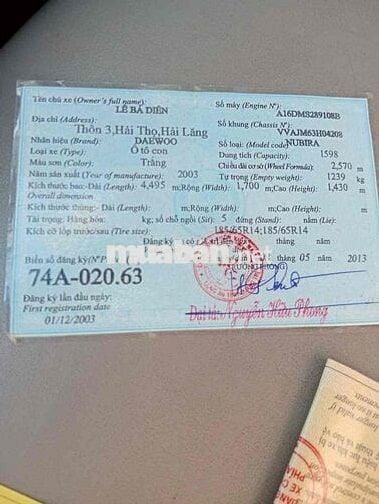 Tên chủ xe (Owner's full name):
LÊ BÁ DIÊN
Địa chỉ (Address):
Thôn 3,Hải Thọ,Hải Lăng
Nhãn hiệu (Brand): DAEWOO
Loại xe (Type): Ô tô con
Màu sơn (Color): Trắng
Năm sản xuất (Year of manufacture): 2003
Số máy (Engine Nº):
A16DMS289108B
Số khung (Chassis Nº):
VVAJM63H04208
Số loại: (Model code) NUBIRA
Dung tích (Capacity): 1598
Chiều dài cơ sở (Wheel Formula): 2,570 m
Tự trọng (Empty weight): 1239 kg
Kích thước bao: Dài (Length): 4,495 m;Rộng (Width): 1,700 m;Cao (Height): 1,430 m
Overall dimension
Kích thước thùng: Dài (Length): m;Rộng (Width): m;Cao (Height): m
Tải trọng: Hàng hóa: kg; số chỗ ngồi (Sit): 5 đứng (Stand): nằm (Lie):
Kích cỡ lốp trước/sau (Tire size): 185/65R14;185/65R14
Đăng ký năm
Biển số đăng ký(Nº
tháng 05 năm 2013
74A-020.63
TRƯỞNG PHÒNG
Đăng ký lần đầu ngày:
First registration date
01/12/2003
Đại tá: Nguyễn Hữu Phong
muaban.net